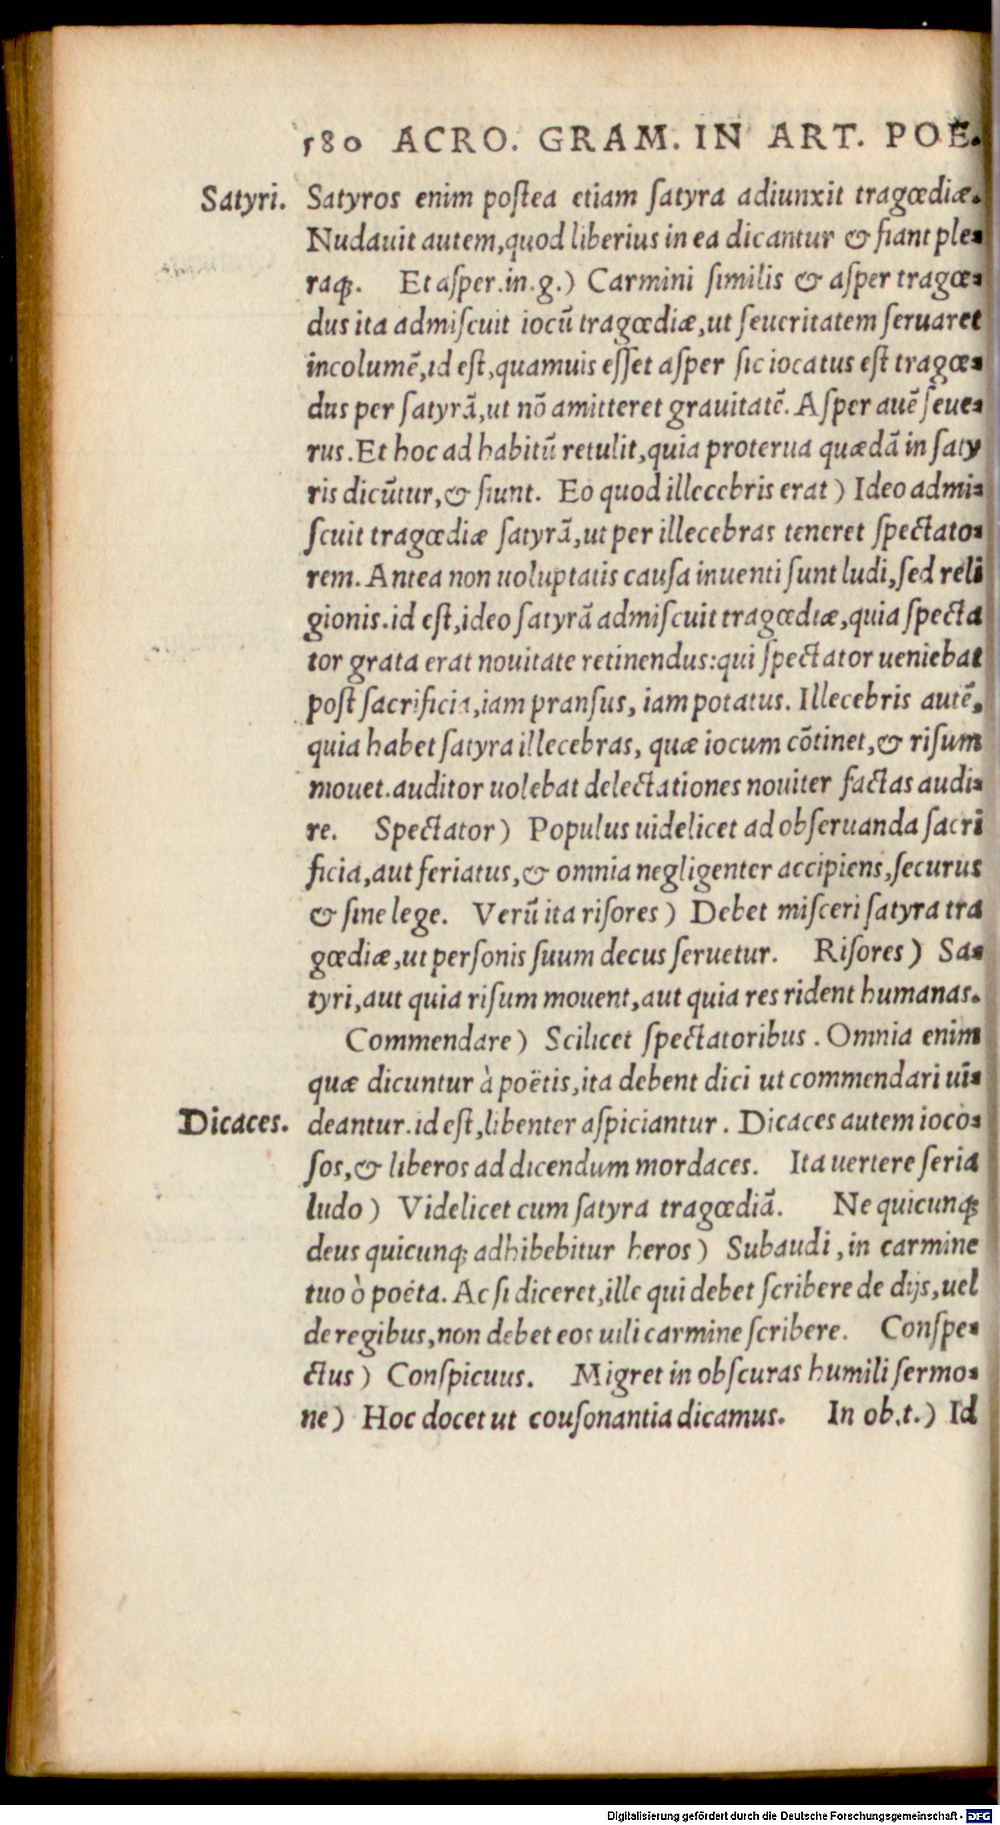 580 ACRO. GRAM. IN ART. POE.
Satyri. Satyros enim poſtea etiam ſatyra adiunxit tragœdiæ.
Nudauit autem, quod liberius in ea dicantur & fiant ple-
raq;. Et aſper.in.g.) Carmini ſimilis & aſper tragœ-
dus ita admiſcuit iocũ tragœdiæ, ut ſeueritatem ſeruaret
incolumẽ, id eſt, quamuis eſſet aſper ſic iocatus eſt tragœ-
dus per ſatyrã, ut nõ amitteret grauitatẽ. Aſper autẽ ſeue-
rus. Et hoc ad habitũ retulit, quia proterua quædã in ſaty
ris dicũtur, & fiunt. Eo quod illecebris erat) Ideo admi-
ſcuit tragœdiæ ſatyrã, ut per illecebras teneret ſpectato-
rem. Antea non uoluptatis cauſa inuenti ſunt ludi, ſed reli
gionis. id eſt, ideo ſatyrã admiſcuit tragœdiæ, quia ſpecta
tor grata erat nouitate retinendus: qui ſpectator ueniebat
poſt ſacrificia, iam pranſus, iam potatus. Illecebris autẽ,
quia habet ſatyra illecebras, quæ iocum cõtinet, & riſum
mouet. auditor uolebat delectationes nouiter factas audi-
re. Spectator) Populus uidelicet ad obſeruanda ſacri
ficia, aut feriatus, & omnia negligenter accipiens, ſecurus
& ſine lege. Verũ ita riſores) Debet miſceri ſatyra tra
gœdiæ, ut perſonis ſuum decus ſeruetur. Riſores) Sa-
tyri, aut quia riſum mouent, aut quia res rident humanas.
Commendare) Scilicet ſpectatoribus. Omnia enim
quæ dicuntur à poëtis, ita debent dici ut commendari ui-
Dicaces. deantur. id eſt, libenter aſpiciantur. Dicaces autem ioco-
ſos, & liberos ad dicendum mordaces. Ita uertere ſeria
ludo) Videlicet cum ſatyra tragœdiã. Ne quicunq;
deus quicunq; adhibebitur heros) Subaudi, in carmine
tuo ò poëta. Ac ſi diceret, ille qui debet ſcribere de dijs, uel
de regibus, non debet eos uili carmine ſcribere. Conſpe-
ctus) Conſpicuus. Migret in obſcuras humili ſermo-
ne) Hoc docet ut couſonantia dicamus. In ob.t.) Id
Digitalisierung gefördert durch die Deutsche Forschungsgemeinschaft - DFG